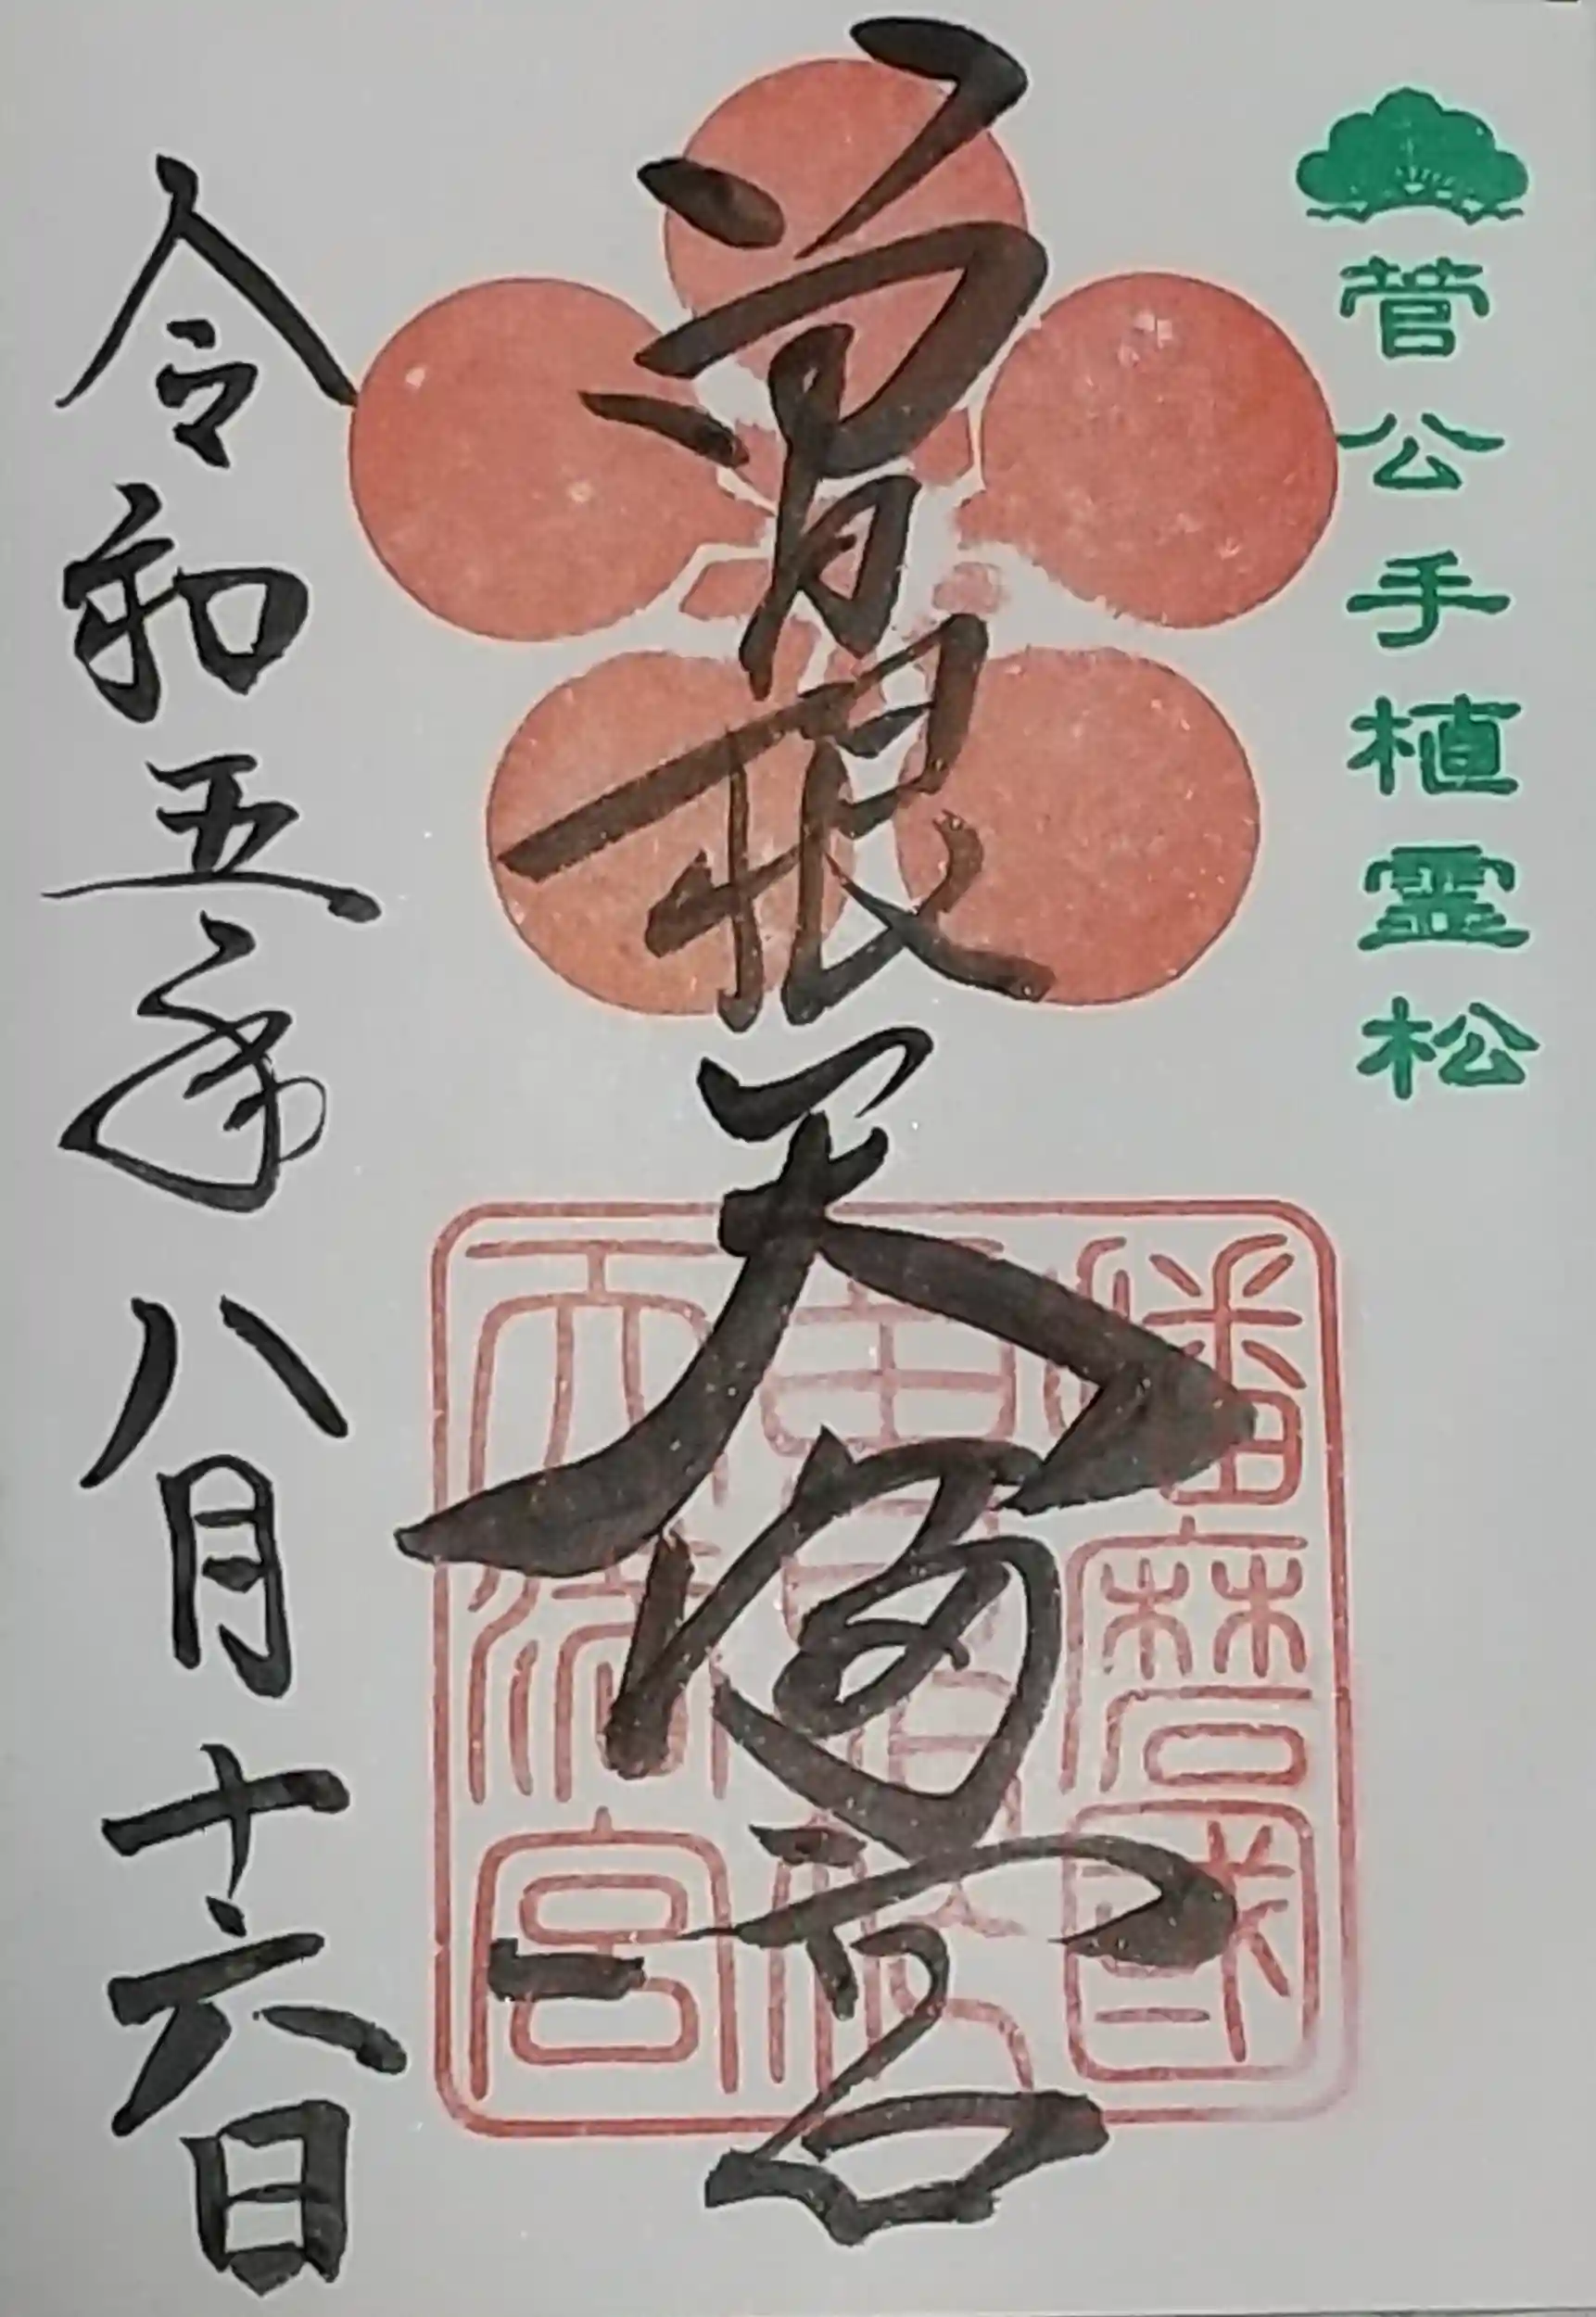 菅公手植霊松
曽根天満宮
播磨國
曽根
天満宮
令和五年八月十六日